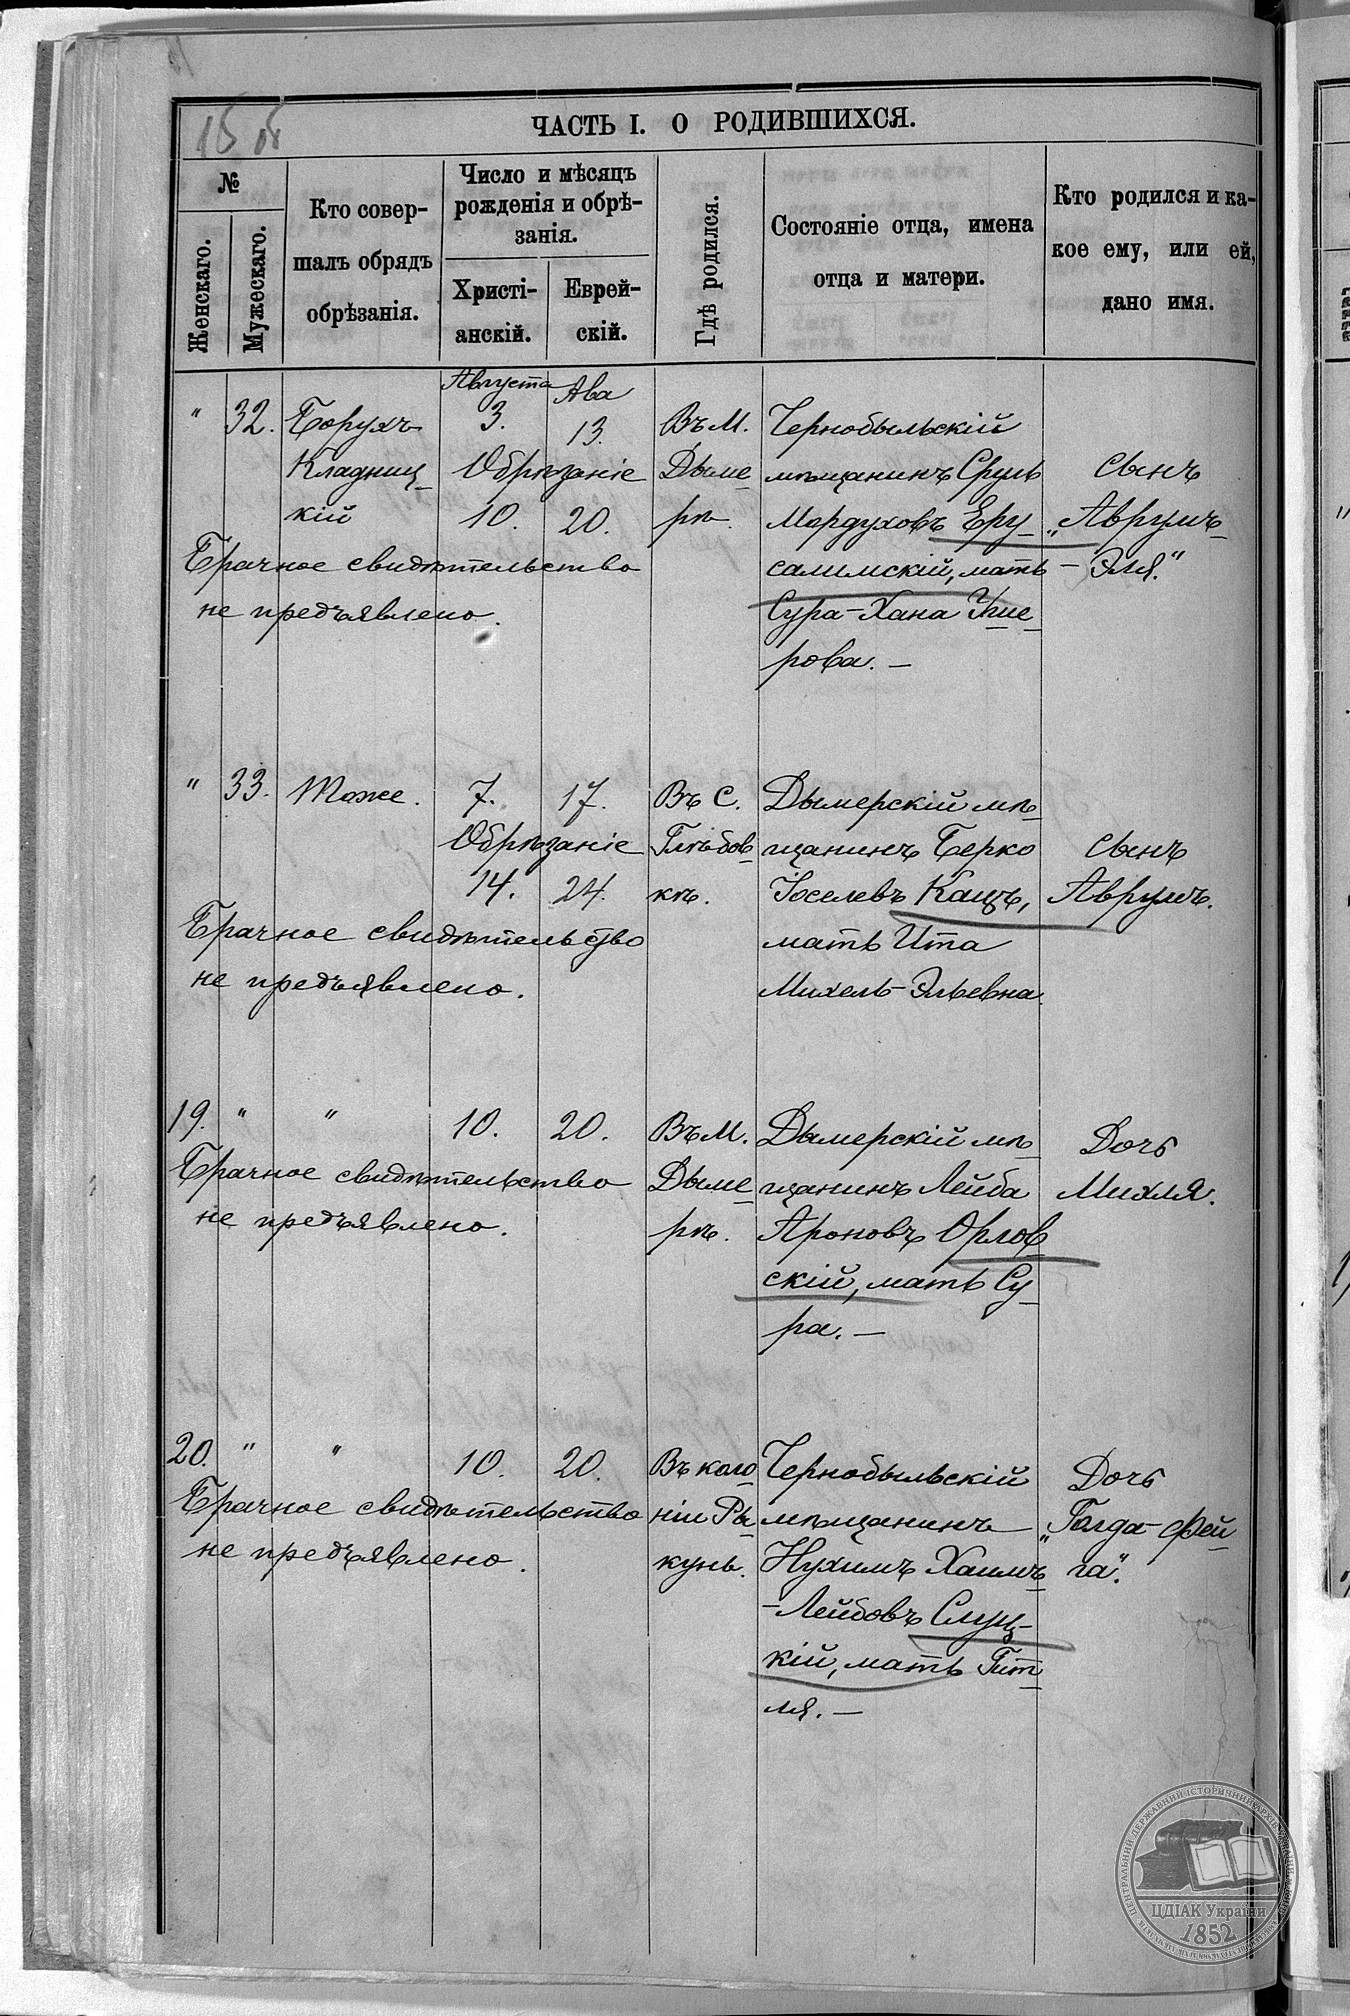 15 об
ЧАСТЬ I. О РОДИВШИХСЯ.
№
Женскаго.
Мужескаго.
Кто совер-
шалъ обрядъ
обрѣзанія.
Число и мѣсяцъ
рожденія и обрѣ-
занія.
Христі-
анскій.
Еврей-
скій.
Гдѣ родился.
Состояніе отца, имена
отца и матери.
Кто родился и ка-
кое ему, или ей,
дано имя.
" 32. Борухъ
Кладниц-
кій
Августа
3.
Ава
13.
Обрѣзаніе
10. 20.
Въ М.
Дыме
рѣ.
Чернобыльскій
мѣщанинъ Сруль
Мордуховъ Еру-
салимскій, мать
Сура-Хана Ушие-
рова. —
сынъ
„Аврумъ-
- Эля."
Брачное свидѣтельство
не предъявлено.
" 33. Тоже. 7. 17.
Обрѣзаніе
14. 24.
Въ С.
Глѣбов
кѣ.
Дымерскій мѣ-
щанинъ Берко
Іоселевъ Кацъ,
мать Ита
Михель-Эльевна.
сынъ
Аврумъ.
Брачное свидѣтельство
не предъявлено.
19. " " 10. 20.
Въ М.
Дыме
рѣ.
Дымерскій мѣ-
щанинъ Лейба
Ароновъ Орлов
скій, мать Су-
ра. —
Дочь
Михля.
Брачное свидѣтельство
не предъявлено.
20. " " 10. 20.
Въ коло
ніи Ры
кунь.
Чернобыльскій
мѣщанинъ
Нухимъ Хаимъ-
-Лейбовъ Слуц-
кій, мать Гит-
ля. —
Дочь
„Голда-Фей-
га".
Брачное свидѣтельство
не предъявлено.
ЦЕНТРАЛЬНИЙ ДЕРЖАВНИЙ ІСТОРИЧНИЙ АРХІВ УКРАЇНИ
ЦДІАК України
1852